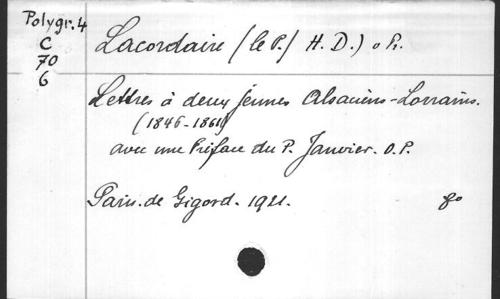 Polygr. 4
C
70
6
Lacordaire (le P./ H. D.) o. P.
Lettres à deux jeunes Alsaciens-Lorrains.
(1846-1861)
avec une Préface du P. Janvier. O.P.
Paris. de Gigord. 1921.
8º